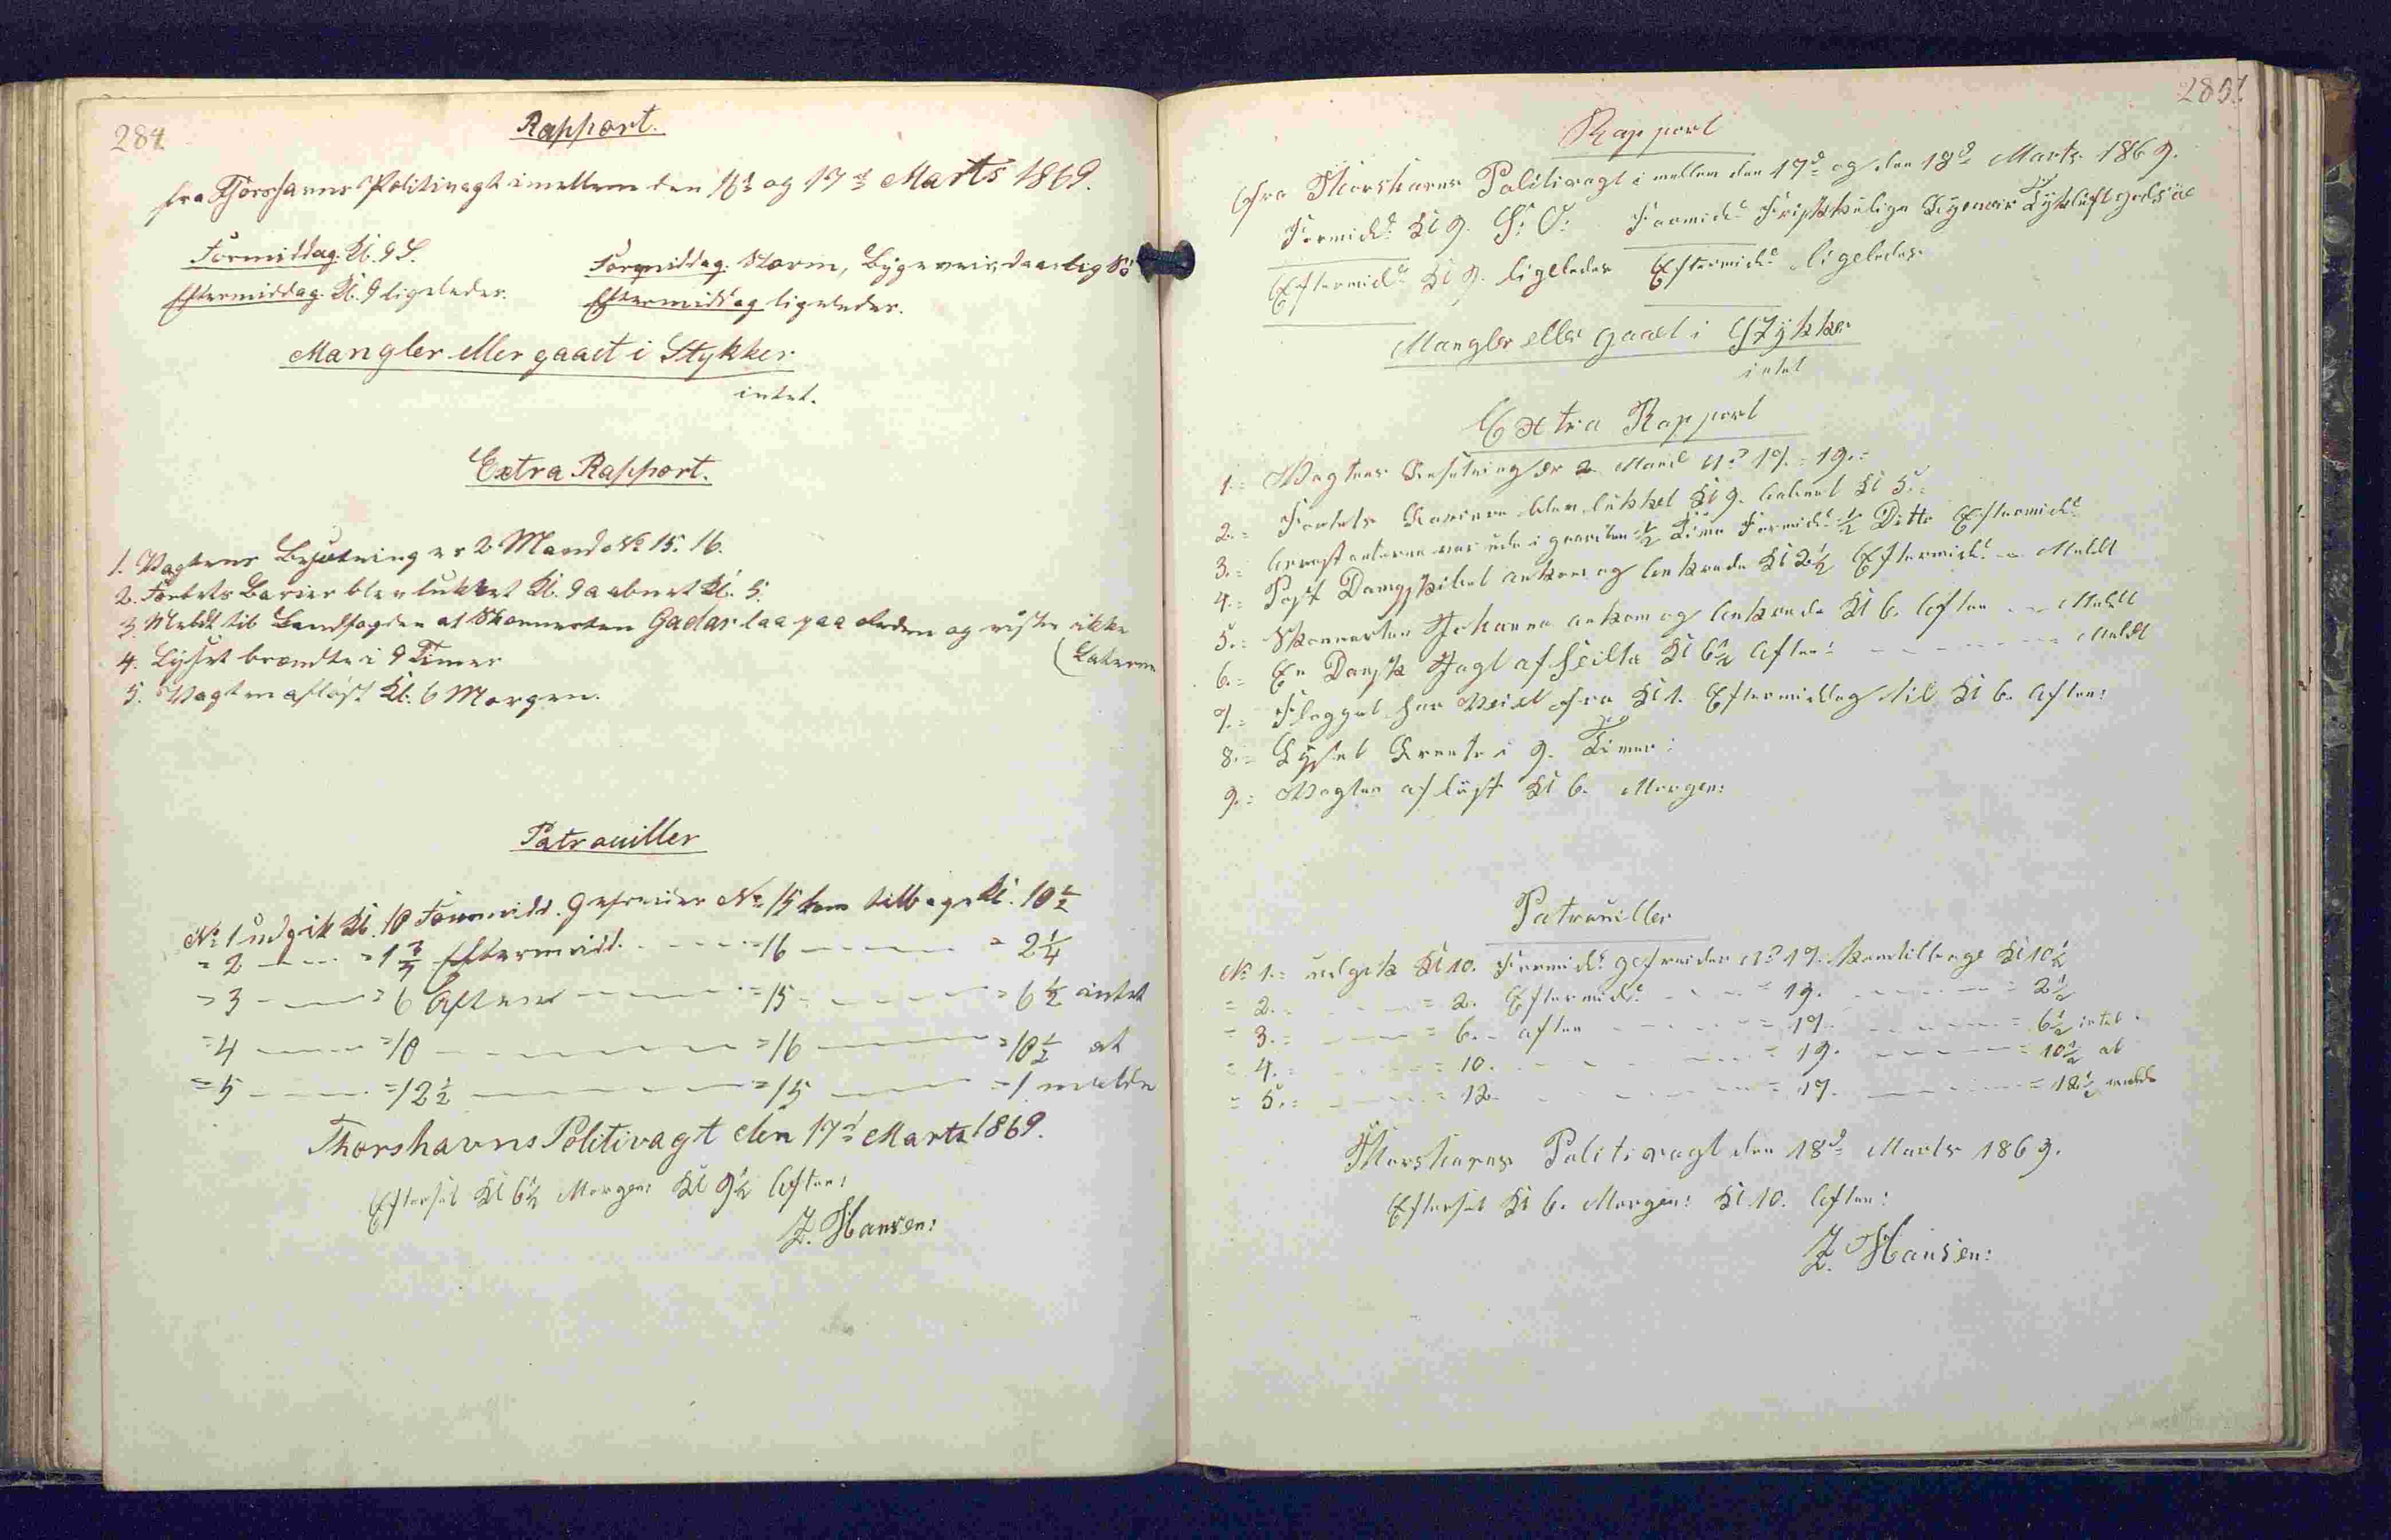 284
Rapport.
fra Thorshavns Politivagt imellem den 16d og 17d Marts 1869.
Formiddag. Kl. 9 S. Formiddag. Storm, Bygeveir, daarlig Sö
Eftermiddag. Kl. 9 ligeledes. Eftermiddag ligeledes.
Mangler eller gaaet i Stykker
intet.
Extra Rapport.
1. Vagtens Besætning er 2 Mand No 15. 16.
2. Fortets Barier blev lukket Kl. 9 aabnet Kl. 5.
3. Meldt til Landfogden at Skonnerten Gadar laa paa Reden og viste ikke
(Lanterne
4. Lyset brændte i 9 Timer
5. Vagten aflöst Kl. 6 Morgen.
Patrouiller
No 1 udgik Kl. 10 Formidd. Gefreider No 15 kom tilbage Kl. 10 1/2
= 2 — = 1 3/4 Eftermidd. — = 16 — = 2 1/4
= 3 — = 6 Aften — = 15 — = 6 1/2 intet
= 4 — = 10 — = 16 — = 10 1/2 at
= 5 — = 12 1/2 — = 15 — = 1 melde
Thorshavns Politivagt den 17d Marts 1869.
Efterset Kl 6 1/2 Morgen: Kl 9 1/2 Aften:
Z. Hansen:
285.
Rapport
fra Thorshavns Politivagt i mellem den 17d og den 18d Marts 1869.
Formidd: Kl 9. S: O: Formidd: Friskkulige Bygeveir
Eftermidd: Kl 9. ligeledes Eftermidd: ligeledes.
Mangler eller gaaet i Stykker
intet
Extra Rapport
1.= Vagtens Besetning er 2 Mand No 17. = 19.=
2.= Fortets Bariere blev lukket Kl 9. Aabnet Kl 5.=
3.= Arrestanterne var ude i gaarden 1/2 Time Formidd: 1/2 Ditto Eftermidd:
4.= Post Dampskibet ankom og Ankrede Kl 2 1/2 Eftermidd: — Meldt
5.= Skonnerten Johanna ankom og Ankrede Kl 6. Aften — Meldt
6.= En Dansk Jagt afseilte Kl 6 1/2 Aften: — Meldt
7.= Flagget har Veiet fra Kl 1. Eftermiddag til Kl 6. Aften:
8.= Lyset Brente i 9. Timer:
9.= Vagten aflöst Kl 6. Morgen:
Patrouiller
No 1.= udgik Kl 10. Formidd: gefreider No 17. kom tilbage Kl 10 1/2
= 2.= — = 2. Eftermidd: — = 19. — = 2 1/2
= 3.= — = 6. aften — = 17. — = 6 1/2 intet.
= 4.= — = 10. — = 19. — = 10 1/2 at
= 5.= — = 12. — = 17. — = 12 1/2 melde
Thorshavns Politivagt den 18d Marts 1869.
Efterset Kl 6. Morgen: Kl 10. Aften:
Z. Hansen: